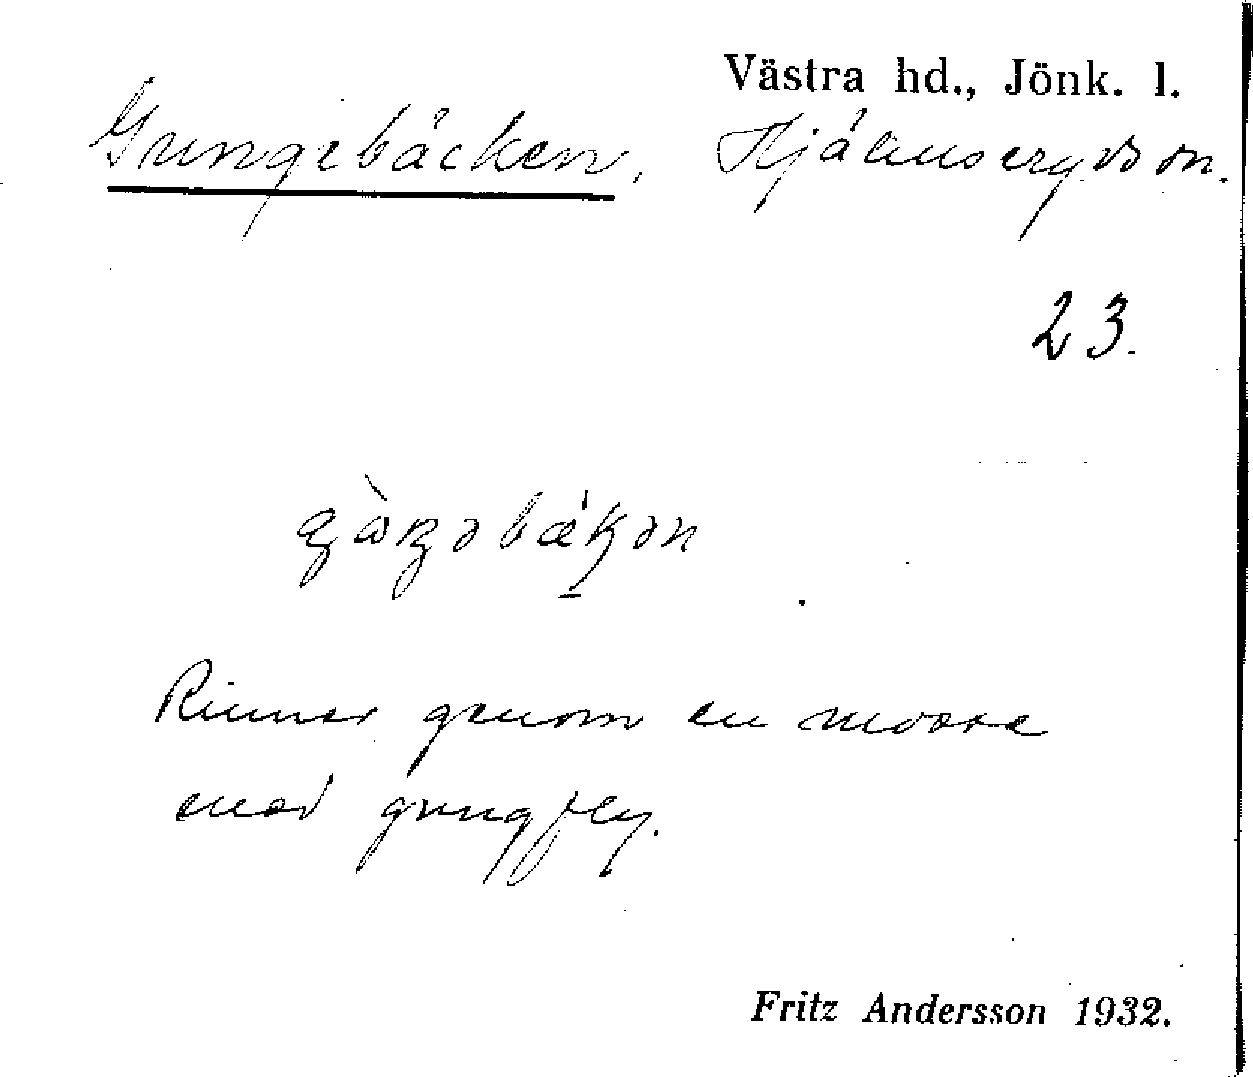 Västra hd., Jönk. l.
Gungebäcken, Hjälmseryds sn.
23.
Rinner genom en mosse
med gungfly.
Fritz Andersson 1932.